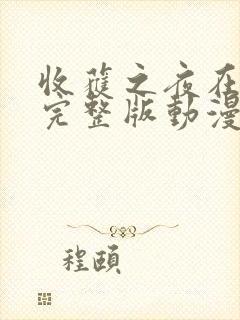 收穫之夜在
完整版動漫
程頤